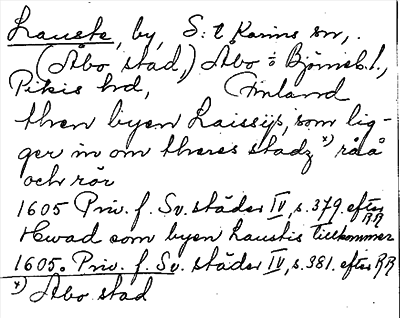 Lauste, by, S:t Karins sn,
(Åbo stad,) Åbo o Björneb. l.,
Pikis hd, Finland
then byen Laissijs, som lig-
ger in om theres stadz x) råå
och rör
1605 Priv. f. Sv. städer IV, s. 379. efter RR
Hwad som byen Laustis tillkommer
1605. Priv. f. Sv. städer IV, s. 381. efter RR
x) Åbo stad